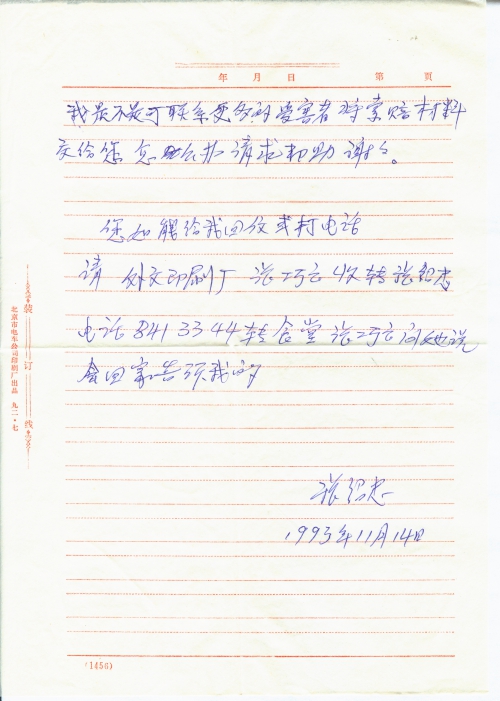 年 月 日 第 页
我是不是可联系更多的受害者将索赔材料
交给您 您 办 请求帮助 谢谢。
您如能给我回信或打电话
请 外文印刷厂 张巧云收转张绍忠
电话8413344转食堂张巧云同她说
会回家告诉我的
张绍忠
1993年11月14日
装订线
北京市电车公司印刷厂出品 九二·七
(1456)